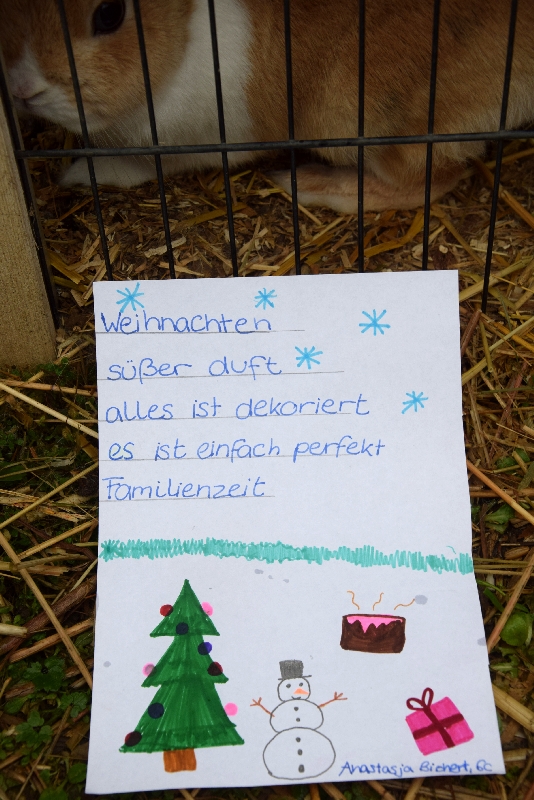 Weihnachten
süßer duft
alles ist dekoriert
es ist einfach perfekt
Familienzeit
Anastasja Bichert, 6c